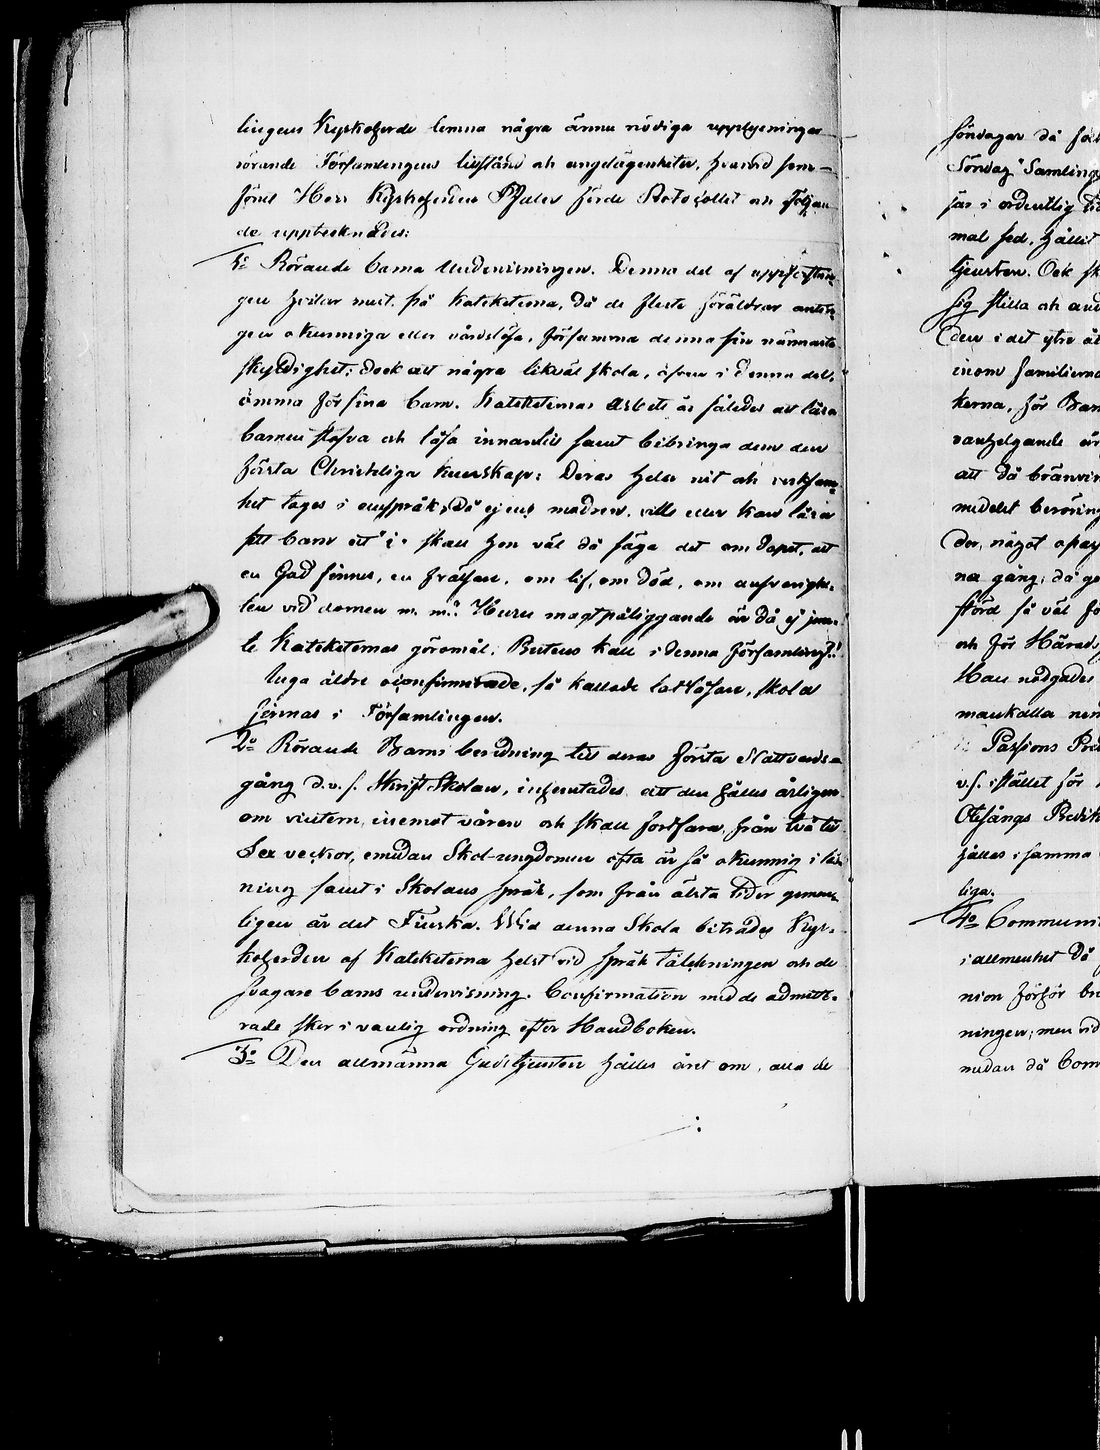 lingens Kyrkoherde lemna några ännu nödiga upplysningar
rörande Församlingens tillstånd och angelägenheter, hvarvid 
 Herr Kyrkoherden förde Protocollet och följan
de upptecknades:
1o Rörande barna Undervisningen. Denna del af 
gen hvilar mest på Kateketerna, då de fleste föräldrar antin
gen okunniga eller vårdslösa, försumma denna sin närmaste
skyldighet; dock att några likväl skola, äfven i denna del,
ömma för sina barn. Kateketernas Arbete är således att lära
barnen stafva och läsa innantill samt bibringa dem den
första Christeliga kunskap: Deras helse nit och verksam
het tages i anspråk, då ej ens modren, vill eller kan lära
sitt barn ett i. skall hon väl då säga det om dopet, att
en Gud finnes, en frälsare, om lif, om död, om 
 vid domen m. m.? Huru magtpåliggande är då ej 
te Kateketernas göromål. i denna församling?
Inga äldre oconfirmerade, så kallade skola
finnas i Församlingen.
2o Rörande Barns beredning till deras första Nattvards
gång d.v.s. Skrift Skolan, inhemtades att den hålles årligen
om vintern, inemot våren och skall fortfara från två till
Sex veckor, emedan Skol-ungdomen ofta är så okunnig i läs
ning samt i Skolans språk, som från älsta tider gemen
ligen är det Finska. Wid denna Skola biträdes Kyr-
koherden af Kateketerna helst vid språk tålckningen och de
svagare barns undervisning. Confirmation med de admitt-
rade sker i vanlig ordning efter Handboken.
3o Den allmänna Gudstjensten hålles året om, alla de
söndagar då 
Söndag" Samling
 i ordentlig 
 sed, hållit
tjensten. Ock 
sig stilla och 
den i det yttre 
inom familierna
kerna, för Barn

att då bränvin
medelst beröring
der, något 
na gång; då 
störd så väl 
och för Härads
Han nödgades

Passions Pred
v.s. istället för
Otesångs Predik
hålles i samma
liga.
4o Communi
i allmenhet då
nion förhör 
ningen; men vid
medan då Com